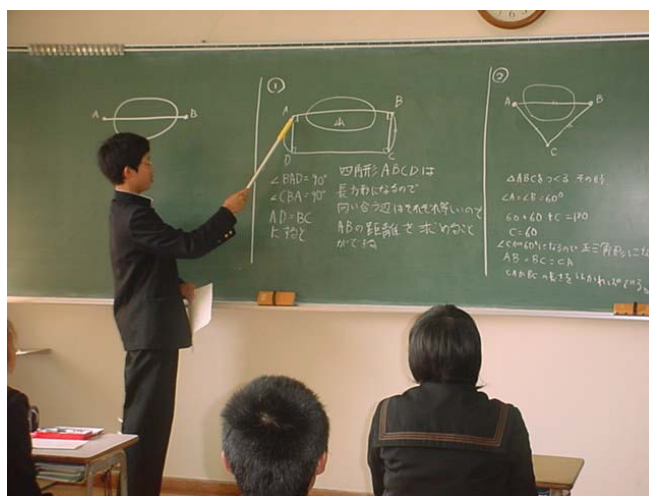 A B
①
A B
山
D C
∠BAD=90°
∠CBA=90°
AD=BC
にすると
四角形ABCDは
長方形になるので
向い合う辺はそれぞれ等しいので
ABの距離を求めること
ができる
②
A B
C
△ABCをつくる その時
∠A=∠B=60°
60+60+C=180
C=60
∠Cが60°になるので 正三角形になる
AB=BC=CA
CAかBCの長さを